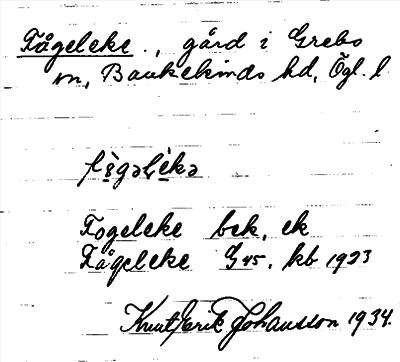 Fågeleke., gård i Grebo
sn, Bankekinds hd, Ögl. l
Fogeleke bek, ek
Fågeleke G 45. kb 1923
Knut Erik Johansson 1934.